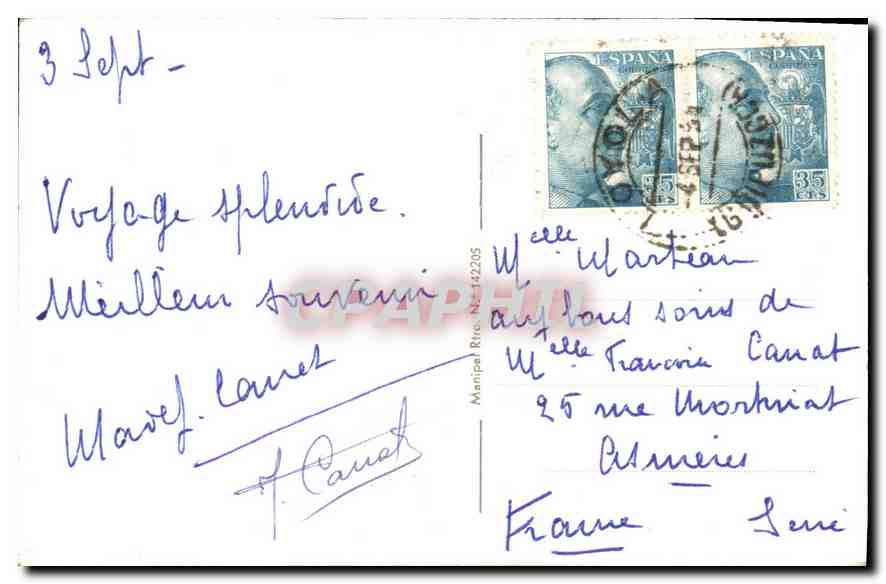 3 Sept -
Voyage splendide.
Meilleur souvenir
Canet
J. Canat
Manipel Rtro. N.º 142205
ESPAÑA
CORREOS
35
CTS
ESPAÑA
CORREOS
35
CTS
LOYOLA
4 SEP 54
(GUIPUZCOA)
Melle Marteau
aux bons soins de
Melle Francoise Canat
25 rue Mortinat
Asnières
France Seine
CPAPHIL